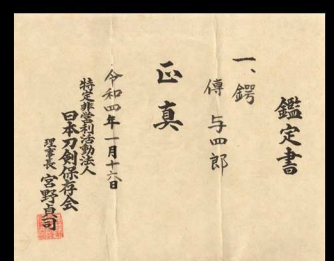 鑑定書
一、鍔
傳 与四郎
正真
令和四年一月十六日
特定非営利活動法人
日本刀剣保存会
理事長 宮野貞司